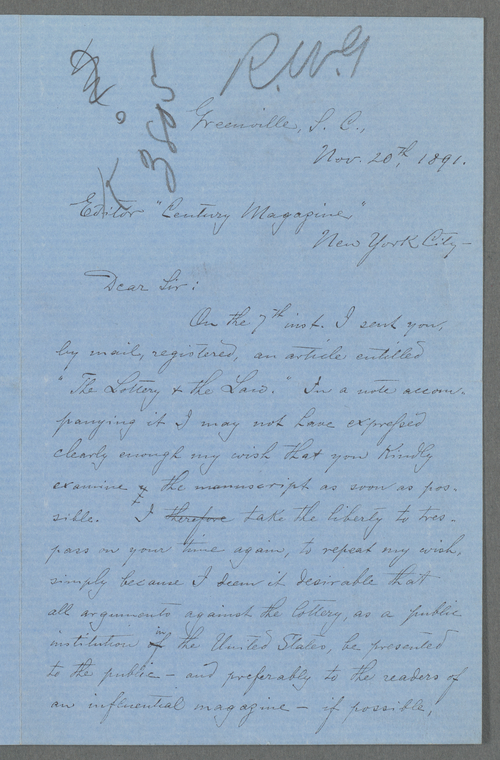 R.W.G
385
Greenville, S. C.,
Nov. 20th, 1891.
Editor "Century Magazine,"
New York City—
Dear Sir:
On the 7th inst. I sent you,
by mail, registered, an article entitled
"The Lottery & the Law." In a note accom-
panying it I may not have expressed
clearly enough my wish that you kindly
examine the manuscript as soon as pos-
sible. I therefore take the liberty to tres-
pass on your time again, to repeat my wish,
simply because I deem it desirable that
all arguments against the lottery, as a public
institution in the United States, be presented
to the public — and preferably to the readers of
an influential magazine — if possible,